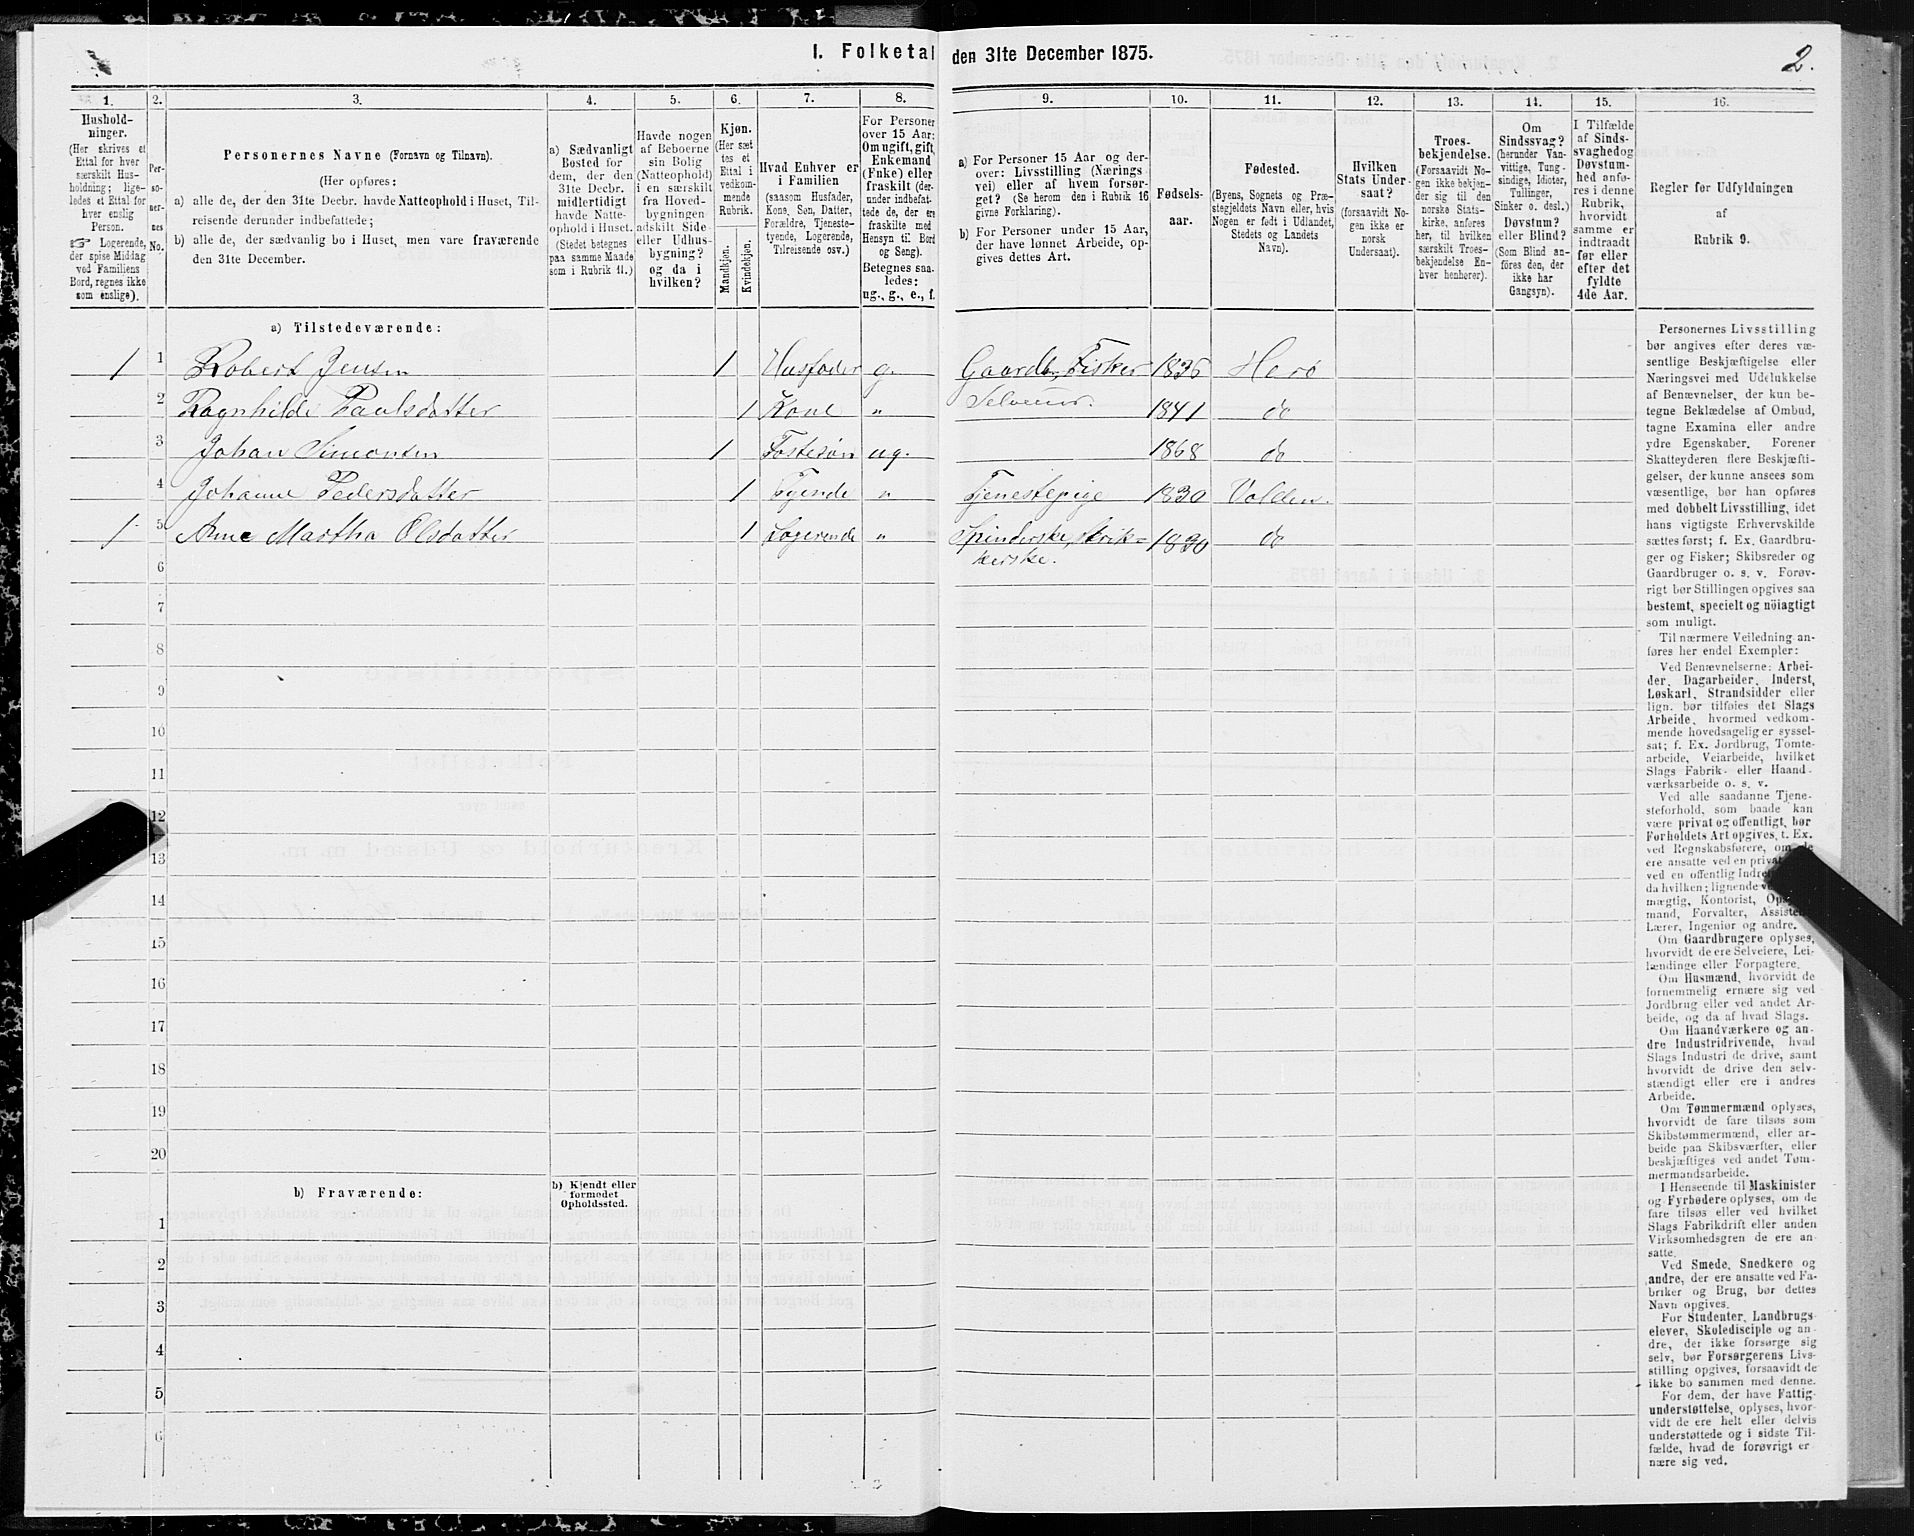 I. Folketal den 31te December 1875.
2.
1.
Hushold-
ninger.
(Her skrives et
Ettal for hver
særskilt Hus-
holdning; lige-
ledes et Ettal for
hver enslig
Person.
☞ Logerende,
der spise Middag
ved Familiens
Bord, regnes ikke
som enslige).
2.
Per-
so-
ner-
nes
No.
3.
Personernes Navne (Fornavn og Tilnavn).
(Her opføres:
a) alle de, der den 31te Decbr. havde Natteophold i Huset, Til-
reisende derunder indbefattede;
b) alle de, der sædvanlig bo i Huset, men vare fraværende
den 31te December.
4.
a) Sædvanligt
Bosted for
dem, der den
31te Decbr.
midlertidigt
havde Natte-
ophold i Huset.
(Stedet betegnes
paa samme Maade
som i Rubrik 11.)
5.
Havde nogen
af Beboerne
sin Bolig
(Natteophold)
i en særskilt
fra Hoved-
bygningen
adskilt Side-
eller Udhus-
bygning?
og da i
hvilken?
6.
Kjøn.
(Her sæt-
tes et
Ettal i
vedkom-
mende
Rubrik.
Mandkjøn.
Kvindekjøn.
7.
Hvad Enhver er
i Familien
(saasom Husfader,
Kone, Søn, Datter,
Forældre, Tjeneste-
tyende, Logerende,
Tilreisende osv.)
8.
For Personer
over 15 Aar:
Om ugift, gift,
Enkemand
(Enke) eller
fraskilt (der-
under indbefat-
tede de, der ere
fraskilte med
Hensyn til Bord
og Seng).
Betegnes saa-
ledes:
ug., g., e., f.
9.
a) For Personer 15 Aar og der-
over: Livsstilling (Nærings-
vei) eller af hvem forsør-
get? (Se herom den i Rubrik 16
givne Forklaring).
b) For Personer under 15 Aar,
der have lønnet Arbeide, op-
gives dettes Art.
10.
Fødsels-
aar.
11.
Fødested.
(Byens, Sognets og Præ-
stegjeldets Navn eller, hvis
Nogen er født i Udlandet,
Stedets og Landets
Navn).
12.
Hvilken
Stats Under-
saat?
(forsaavidt No-
gen ikke er
norsk
Undersaat).
13.
Troes-
bekjendelse.
(Forsaavidt No-
gen ikke bekjen-
der sig til den
norske Stats-
kirke, anføres
her, til hvilken
særskilt Troes-
bekjendelse En-
hver henhører).
14.
Om
Sindssvag?
(herunder Van-
vittige, Tung-
sindige, Idioter,
Tullinger,
Sinker o. desl.)
Døvstum?
eller Blind?
(Som Blind an-
føres den, der
ikke har
Gangsyn).
15.
I Tilfælde
af Sinds-
svaghed og
Døvstum-
hed anfø-
res i denne
Rubrik,
hvorvidt
samme er
indtraadt
før eller
efter det
fyldte
4de Aar.
16.
Regler for Udfyldningen
af
Rubrik 9.
a) Tilstedeværende:
1 1 Robert Jensen 1 Husfader g. Gaardbr, Fisker 1836 Herø
Selveier.
2 Ragnhilde Paulsdatter 1 Kone " 1841 do
3 Johan Simonsen 1 Fostesøn ug. 1868 do
4 Johanne Pedersdatter 1 Tyende " Tjenestepige 1830 Volden.
1 5 Ane Martha Olsdatter 1 Logerende " Spinderske, strik- 1830 do
kerske.
6
7
8
9
10
11
12
13
14
15
16
17
18
19
20
b) Fraværende:
b) Kjendt eller
formodet
Opholdssted.
1
2
3
4
5
6
Personernes Livsstilling
bør angives efter deres væ-
sentlige Beskjæftigelse eller
Næringsvei med Udelukkelse
af Benævnelser, der kun be-
tegne Beklædelse af Ombud,
tagne Examina eller andre
ydre Egenskaber. Forener
Skatteyderen flere Beskjæfti-
gelser, der kunne ansees som
væsentlige, bør han opføres
med dobbelt Livsstilling, idet
hans vigtigste Erhvervskilde
sættes først; f. Ex. Gaardbru-
ger og Fisker; Skibsreder og
Gaardbruger o. s. v. Forøv-
rigt bør Stillingen opgives saa
bestemt, specielt og nöiagtigt
som muligt.
Til nærmere Veiledning an-
føres her endel Exempler:
Ved Benævnelserne: Arbei-
der, Dagarbeider, Inderst,
Løskarl, Strandsidder eller
lign. bør tilføies det Slags
Arbeide, hvormed vedkom-
mende hovedsagelig er syssel-
sat; f. Ex. Jordbrug, Tomte-
arbeide, Veiarbeide, hvilket
Slags Fabrik- eller Haand-
værksarbeide o. s. v.
Ved alle saadanne Tjene-
steforhold, som baade kan
være privat og offentligt, bør
Forholdets Art opgives, t. Ex.
ved Regnskabsførere, om de
ere ansatte ved en privat
ved en offentlig Indre
da hvilken; lignende
mægtig, Kontorist, Op
mand, Forvalter, Assisten
Lærer, Ingeniør og andre.
Om Gaardbrugere oplyses,
hvorvidt de ere Selveiere, Lei-
lændinge eller Forpagtere.
Om Husmænd, hvorvidt de
fornemmelig ernære sig ved
Jordbrug eller ved andet Ar-
beide, og da af hvad Slags.
Om Haandværkere og an-
dre Industridrivende, hvad
Slags Industri de drive, samt
hvorvidt de drive den selv-
stændigt eller ere i andres
Arbeide.
Om Tømmermænd oplyses,
hvorvidt de fare tilsøs som
Skibstømmermænd, eller ar-
beide paa Skibsværfter, eller
beskjæftiges ved andet Tøm-
mermandsarbeide.
I Henseende til Maskinister
og Fyrbødere oplyses, om de
fare tilsøs eller ved hvilket
Slags Fabrikdrift eller anden
Virksomhedsgren de ere an-
satte.
Ved Smede, Snedkere og
andre, der ere ansatte ved Fa-
briker og Brug, bør dettes
Navn opgives.
For Studenter, Landbrugs-
elever, Skoledisciple og an-
dre, der ikke forsørge sig
selv, bør Forsørgerens Livs-
stilling opgives, forsaavidt de
ikke bo sammen med denne.
For dem, der have Fattig-
understøttelse, oplyses, hvor-
vidt de ere helt eller delvis
understøttede og i sidste Til-
fælde, hvad de forøvrigt er-
nære sig ved.